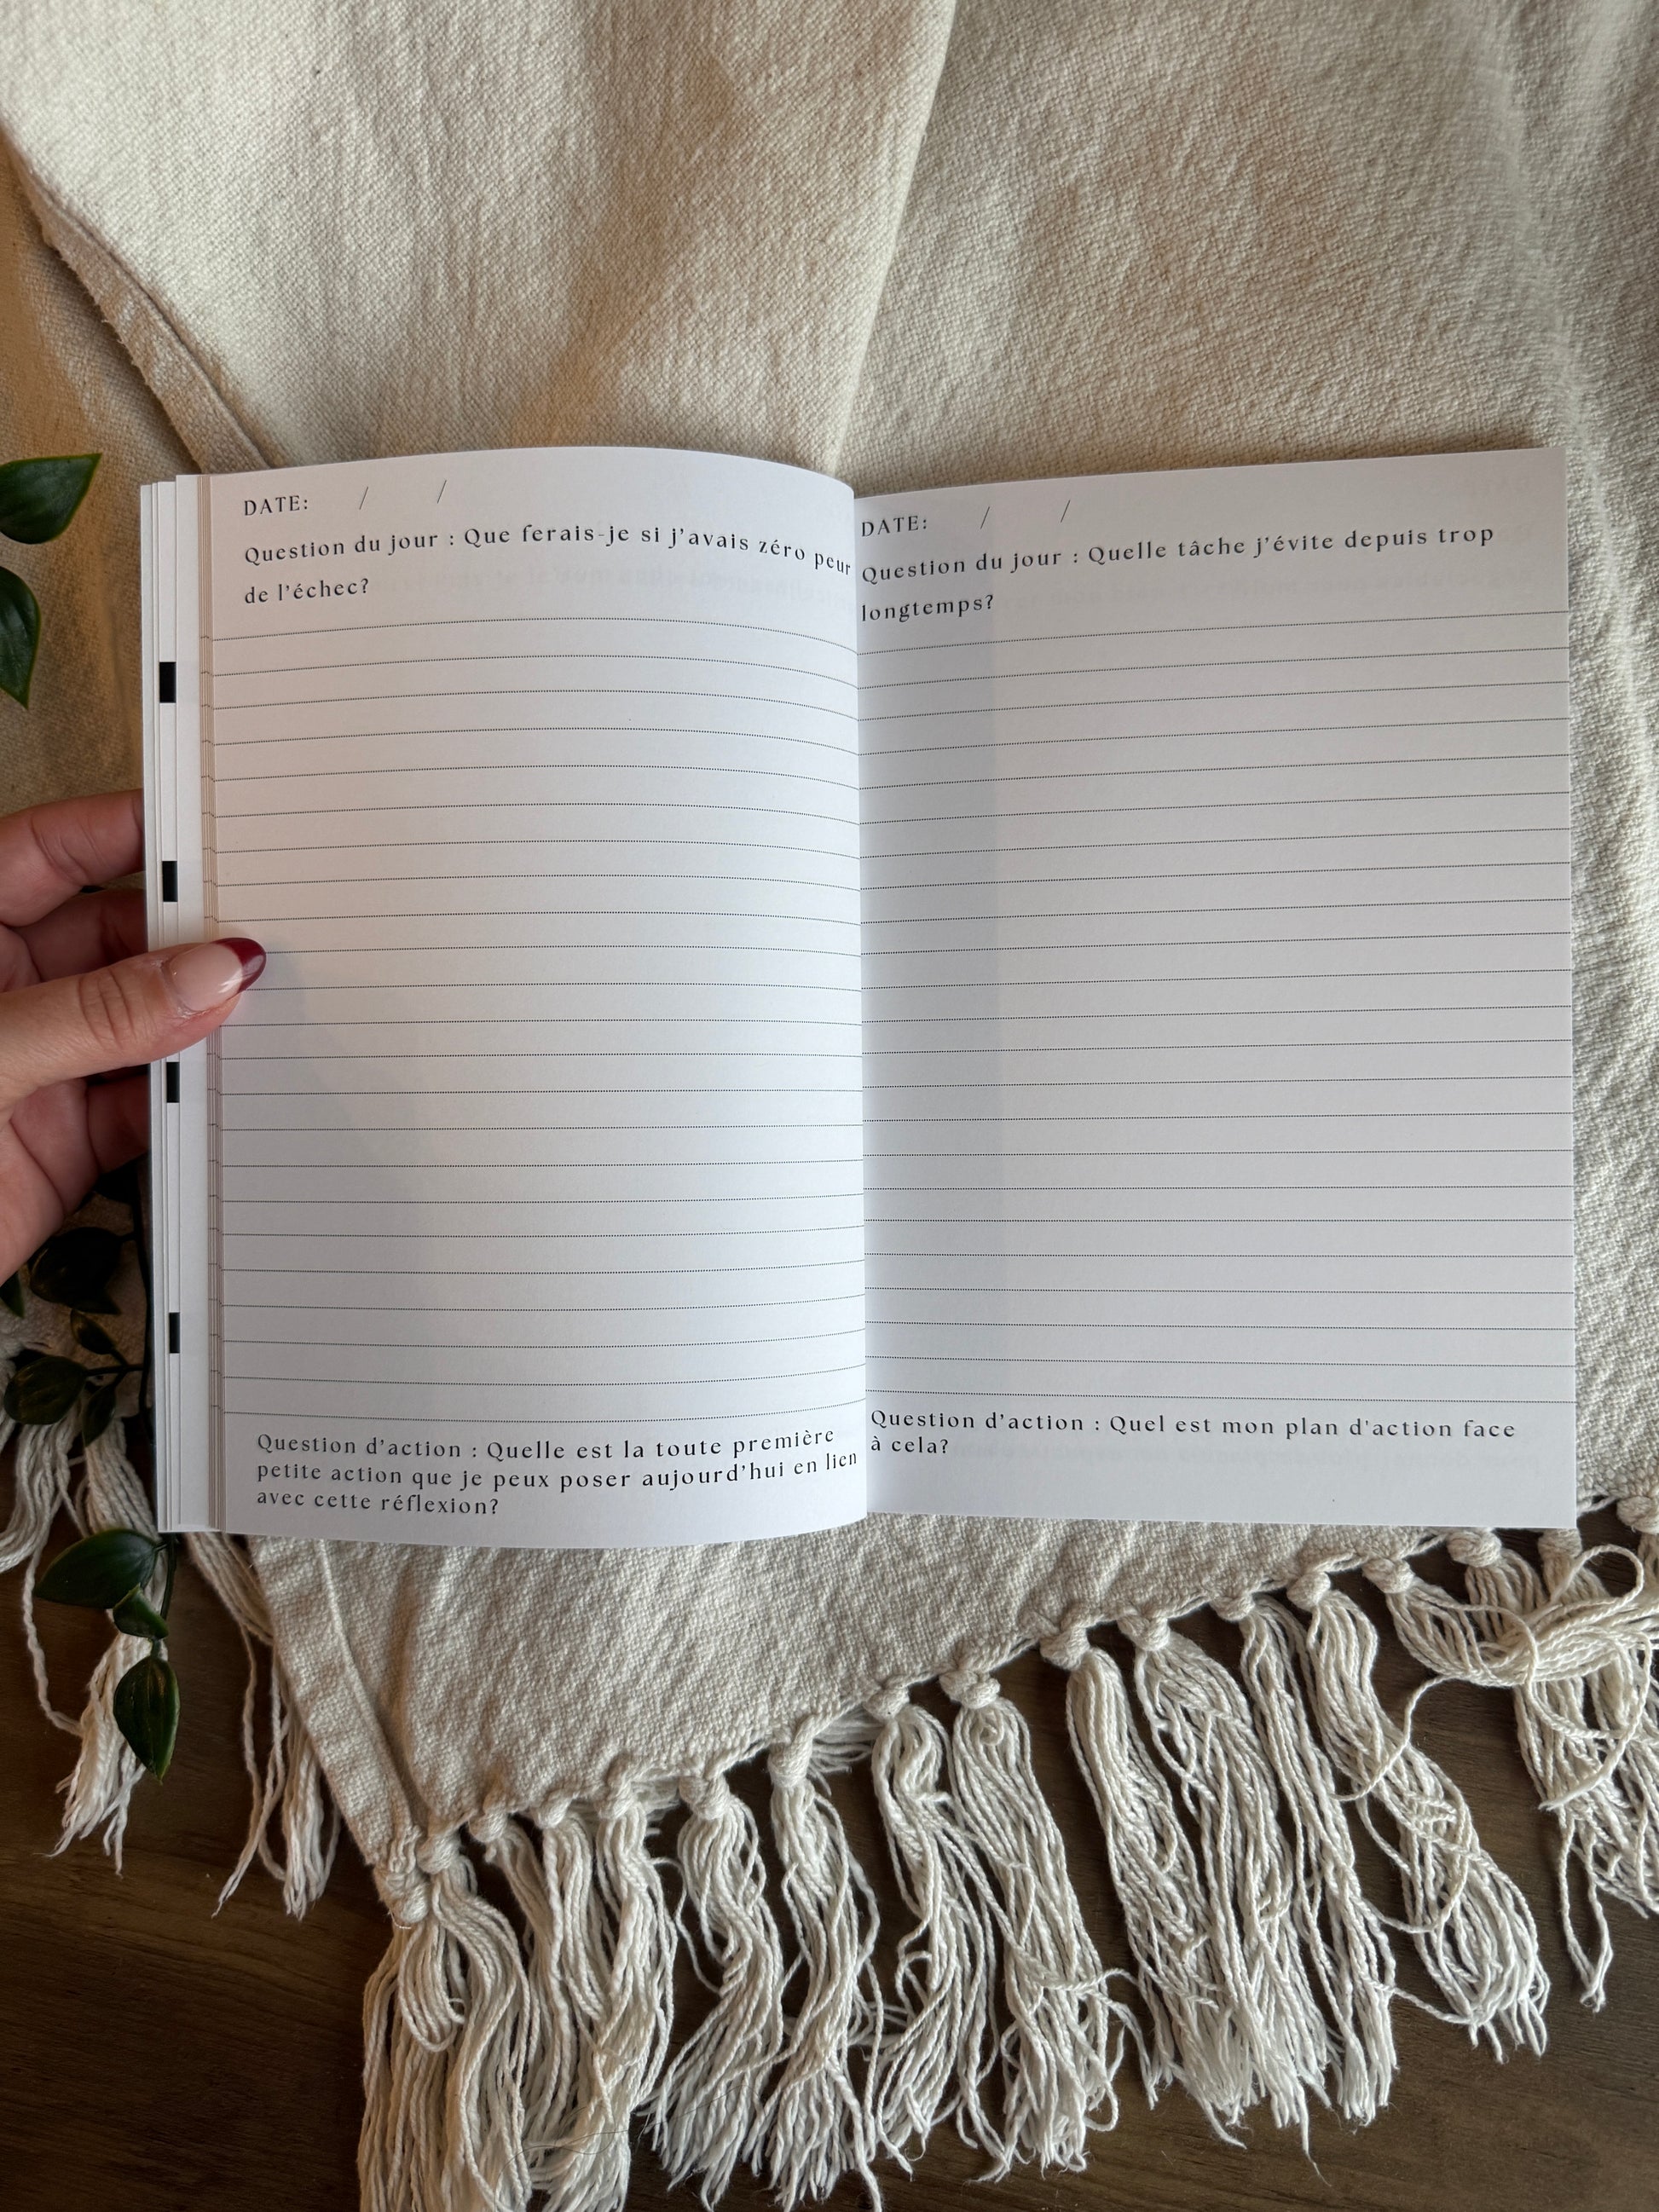 DATE: / /
Question du jour : Que ferais-je si j’avais zéro peur
de l’échec?
Question d’action : Quelle est la toute première
petite action que je peux poser aujourd’hui en lien
avec cette réflexion?
DATE: / /
Question du jour : Quelle tâche j’évite depuis trop
longtemps?
Question d’action : Quel est mon plan d'action face
à cela?